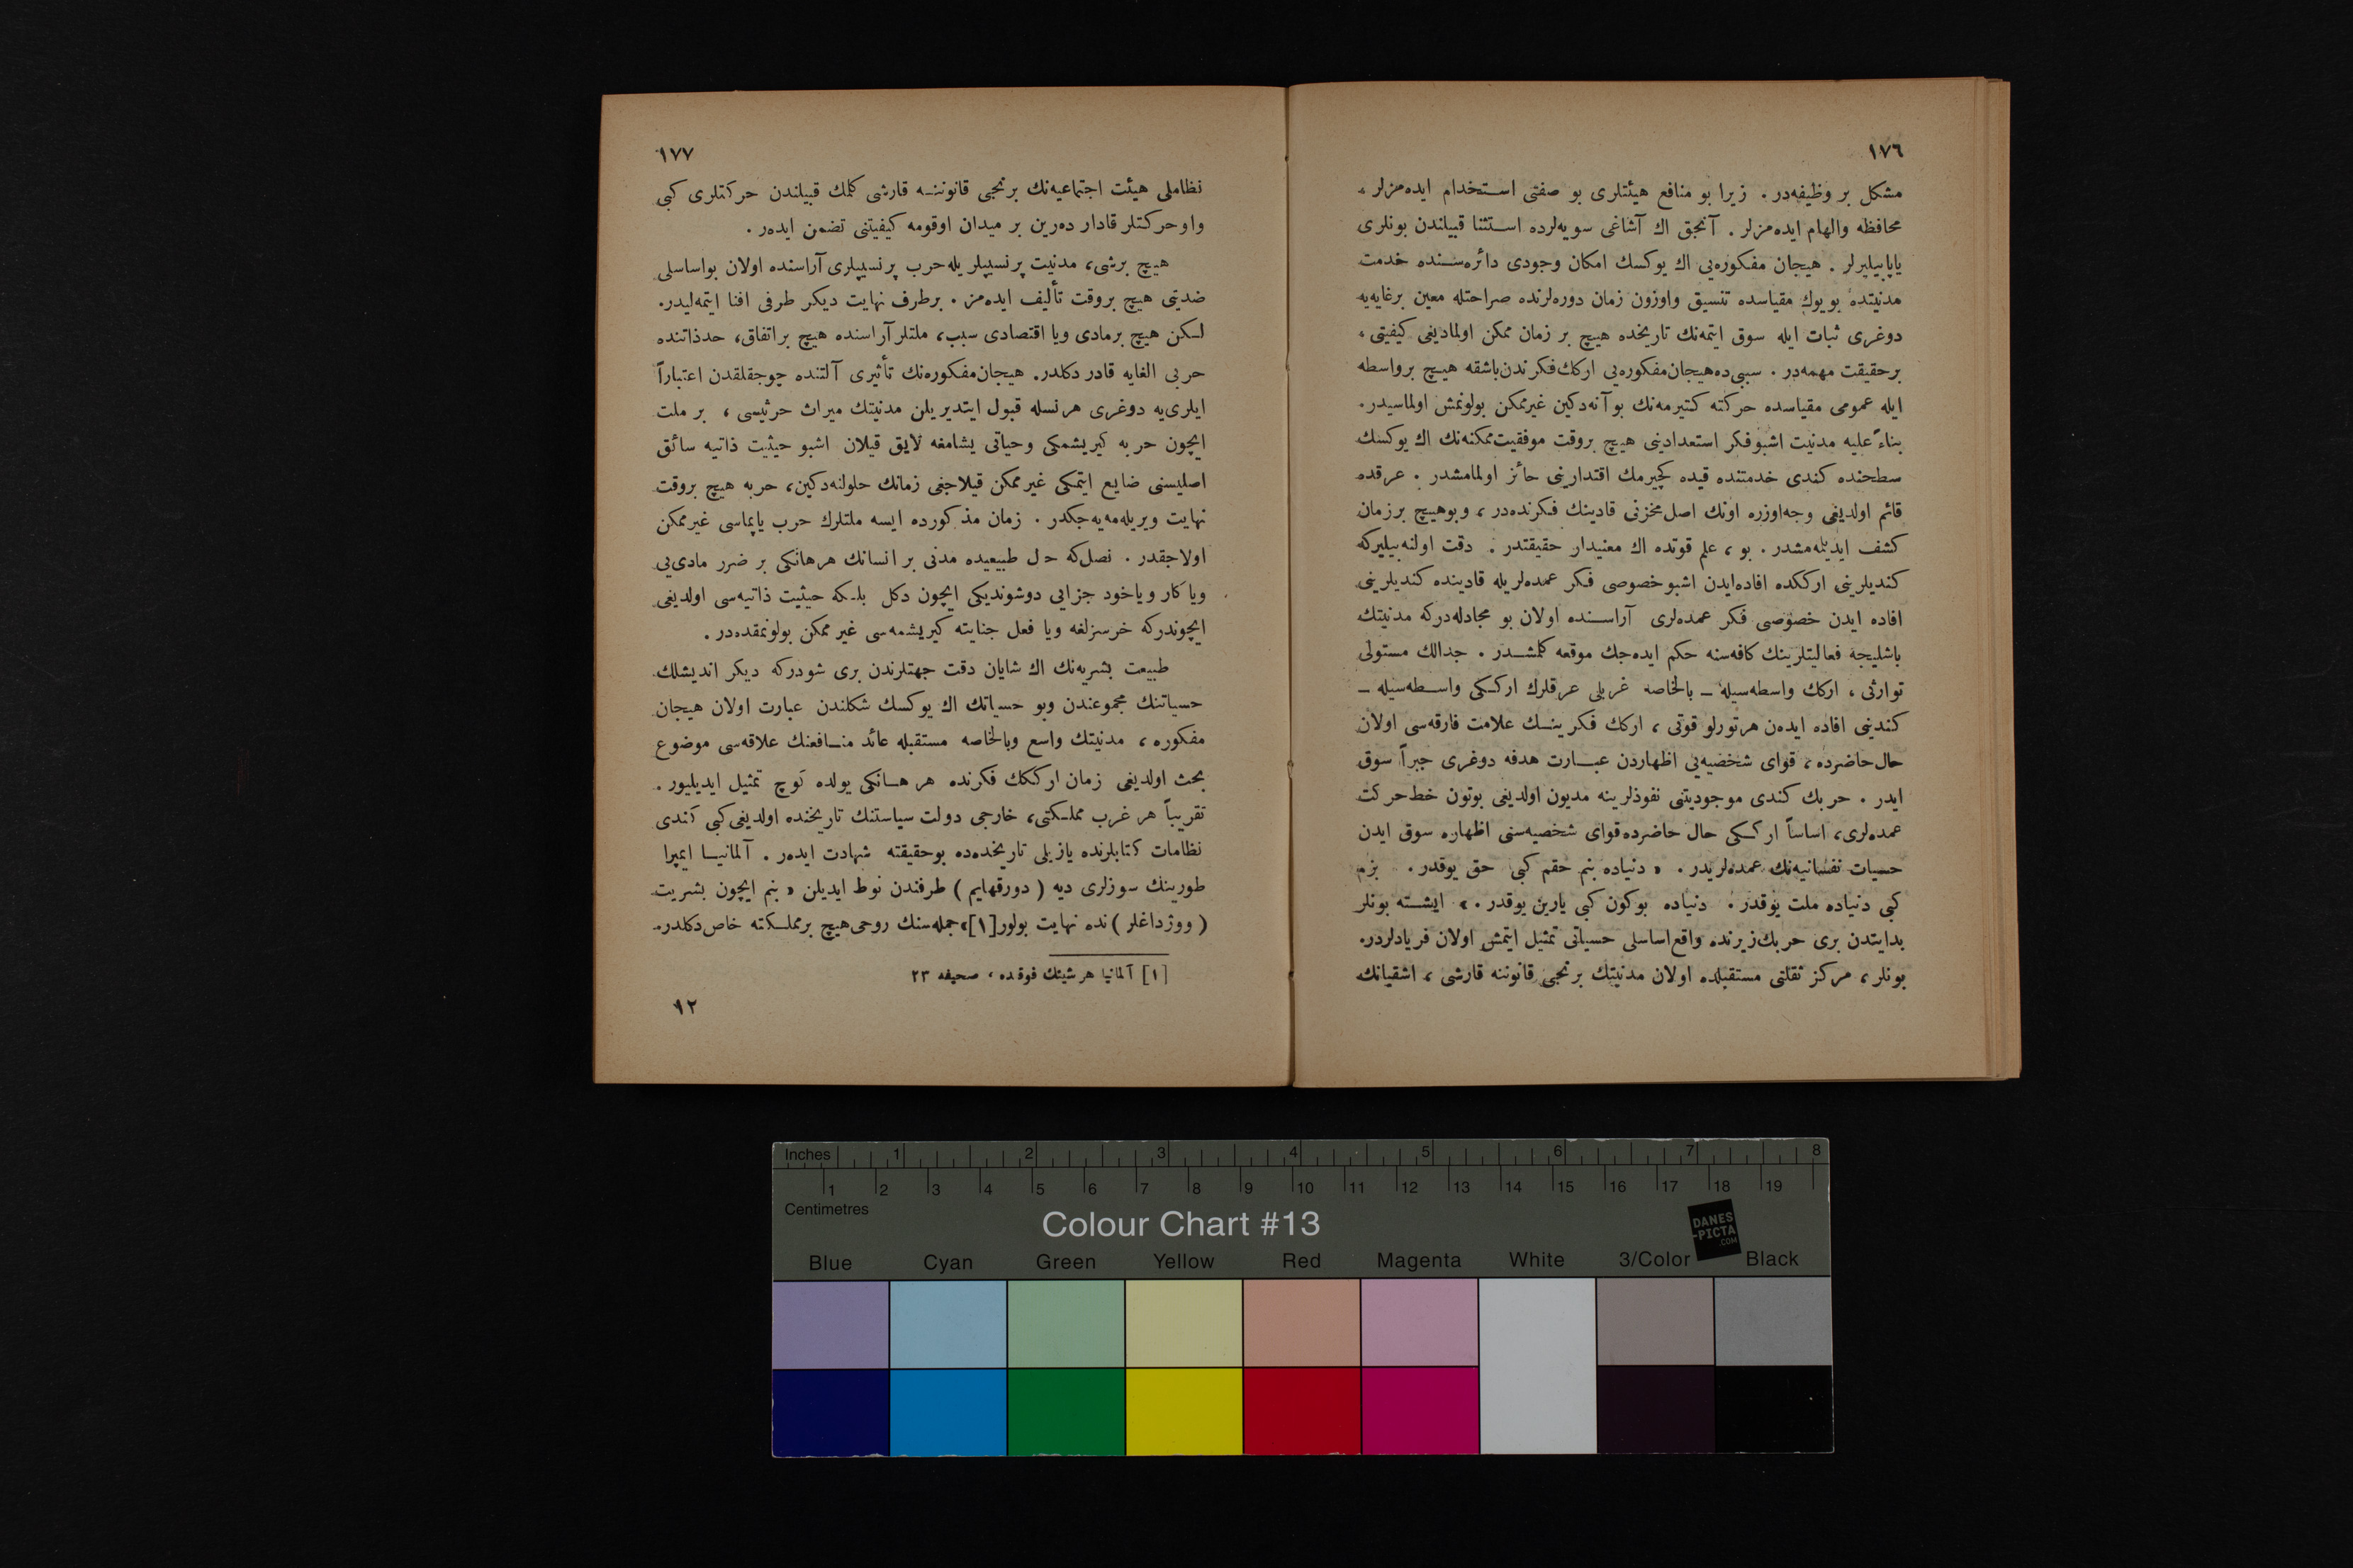 ١٧٦
مشكل بر وظيفه‌در . زيرا بو منافع هيئتلرى بو صفتى استخدام ايده‌مزلر ،
محافظه والهام ايده‌مزلر . آنجق اك آشاغى سويه‌لرده استثنا قبيلندن بونلرى
ياپابيليرلر . هيجان مفكوره‌يى اك يوكسك امكان وجودى دائره‌سنده خدمت
مدنيتده بويوك مقياسده تنسيق واوزون زمان دوره‌لرنده صراحتله معين برغايه‌يه
دوغرى ثبات ايله سوق ايتمه‌نك تاريخده هيچ بر زمان ممكن اولماديغى كيفيتى ،
برحقيقت مهمه‌در . سببى‌ده هيجان مفكوره‌يى اركك فكرندن باشقه هيچ برواسطه
ايله عمومى مقياسده حركته كتيرمه‌نك بو آنه‌دكين غيرممكن بولونمش اولماسيدر.
بناءً عليه مدنيت اشبو فكر استعدادينى هيچ بروقت موفقيت ممكنه‌نك اك يوكسك
سطحنده كندى خدمتنده قيده كچيرمك اقتدارينى حائز اولمامشدر . عرقده
قائم اولديغى وجه‌اوزره اونك اصل مخزنى قادينك فكرنده‌در ، وبوهيچ برزمان
كشف ايديله‌مشدر . بو ، علم قوتده اك معنيدار حقيقتدر . دقت اولنه‌بيليركه
كنديلرينى ارككده افاده‌ايدن اشبو خصوصى فكر عمده‌لريله قادينده كنديلرينى
افاده ايدن خصوصى فكر عمده‌لرى آراسنده اولان بو مجادله‌دركه مدنيتك
باشليجه فعاليتلرينك كافه‌سنه حكم ايده‌جك موقعه كلمشدر . جدالك مستولى
توارثى ، اركك واسطه‌سيله ــ بالخاصه غربلى عرقلرك ارككى واسطه‌سيله ــ
كندينى افاده ايده‌ن هرتورلو قوتى ، اركك فكرينك علامت فارقه‌سى اولان
حال حاضرده ، قواى شخصيه‌يى اظهاردن عبارت هدفه دوغرى جبراً سوق
ايدر . حربك كندى موجوديتنى نفوذلرينه مديون اولديغى بوتون خط‌حركت
عمده‌لرى، اساساً ارككى حال حاضرده قواى شخصيه‌سنى اظهاره سوق ايدن
حسيات نفسانيه‌نك عمده‌لريدر . « دنياده بنم حقم كبى حق يوقدر . بزم
كبى دنياده ملت يوقدر . دنياده بوكون كبى يارين يوقدر . » ايشته بونلر
بدايتدن برى حربك‌زيرنده واقع‌اساسلى حسياتى تمثيل ايتمش اولان فريادلردر.
بونلر ، مركز ثقلتى مستقبلده اولان مدنيتك برنجى قانوننه قارشى ، اشقيانك
١٧٧
نظاملى هيئت اجتماعيه‌نك برنجى قانوننه قارشى كلمك قبيلندن حركتلرى كبى
واوحركتلر قادار ده‌رين بر ميدان اوقومه كيفيتنى تضمن ايده‌ر .
هيچ برشى، مدنيت پرنسيپلريله حرب پرنسيپلرى آراسنده اولان بواساسلى
ضديتى هيچ بروقت تأليف ايده‌مز . برطرف نهايت ديكر طرفى افنا ايتمه‌ليدر.
لكن هيچ برمادى ويا اقتصادى سبب، ملتلر آراسنده هيچ براتفاق، حدذاتنده
حربى الغايه قادر دكلدر. هيجان مفكوره‌نك تأثيرى آلتنده چوجقلقدن اعتباراً
ايلرى‌يه دوغرى هرنسله قبول ايتديريلن مدنيتك ميراث حرثيسى ، بر ملت
ايچون حربه كيريشمكى وحياتى يشامغه لايق قيلان اشبو حيثيت ذاتيه سائق
اصليسنى ضايع ايتمكى غيرممكن قيلاجغى زمانك حلولنه‌دكين، حربه هيچ بروقت
نهايت ويريله‌مه‌يه‌جكدر . زمان مذكورده ايسه ملتلرك حرب ياپماسى غيرممكن
اولاجقدر . نصل‌كه حال طبيعيده مدنى بر انسانك هرهانكى بر ضرر مادى‌يى
ويا كار وياخود جزايى دوشونديكى ايچون دكل بلكه حيثيت ذاتيه‌سى اولديغى
ايچوندركه خرسزلغه ويا فعل جنايته كيريشمه‌سى غير ممكن بولونمقده‌در .
طبيعت بشريه‌نك اك شايان دقت جهتلرندن برى شودركه ديكر انديشلك
حسياتنك مجموعندن وبو حسياتك اك يوكسك شكلندن عبارت اولان هيجان
مفكوره ، مدنيتك واسع وبالخاصه مستقبله عائد منافعنك علاقه‌سى موضوع
بحث اولديغى زمان ارككك فكرنده هر هانكى يولده كوچ تمثيل ايديليور .
تقريباً هر غرب مملكتى، خارجى دولت سياستنك تاريخنده اولديغى كبى كندى
نظامات كتابلرنده يازيلى تاريخده‌ده بوحقيقته شهادت ايده‌ر . آلمانيا ايمپرا
طورينك سوزلرى ديه ( دورقهايم ) طرفندن نوط ايديلن « بنم ايچون بشريت
( ووژداغلر ) نده نهايت بولور [١]، جمله‌سنك روحى‌هيچ برمملكته خاص‌دكلدر.
[١] آلمانيا هرشيئك فوقنده ، صحيفه ٢٣
١٢
Inches 1 2 3 4 5 6 7 8
1 2 3 4 5 6 7 8 9 10 11 12 13 14 15 16 17 18 19
Centimetres
Colour Chart #13
DANES
-PICTA
.COM
Blue Cyan Green Yellow Red Magenta White 3/Color Black